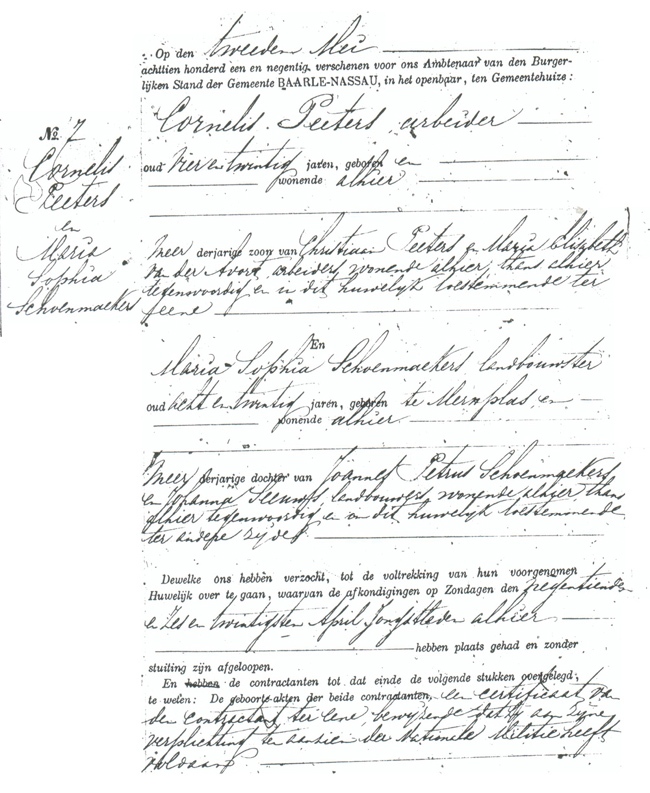 Op den tweeden Mei
achttien honderd een en negentig, verschenen voor ons Ambtenaar van den Burger-
lijken Stand der Gemeente BAARLE-NASSAU, in het openbaar, ten Gemeentehuize:
No. 7
Cornelis
Peeters
en
Maria
Sophia
Schoenmaekers
Cornelis Peeters arbeider
oud vier en twintig jaren, geboren en
wonende alhier
Meer derjarige zoon van Christiaan Peeters en Maria Elizabeth
van der Avort, arbeiders, wonende alhier, thans alhier
tegenwoordig en in dit huwelijk toestemmende ter
eene
En
Maria Sophia Schoenmaekers landbouwster
oud acht en twintig jaren, geboren te Merxplas en
wonende alhier
Meer derjarige dochter van Joannes Petrus Schoenmaekers
en Johanna landbouwers, wonende alhier thans
alhier tegenwoordig en in dit huwelijk toestemmende
ter andere zijde
Dewelke ons hebben verzocht, tot de voltrekking van hun voorgenomen
Huwelijk over te gaan, waarvan de afkondigingen op Zondagen den negentienden
en zes en twintigsten April jongstleden alhier
hebben plaats gehad en zonder
stuiting zijn afgeloopen.
En hebben de contractanten tot dat einde de volgende stukken overgelegd,
te weten: De geboorte-akten der beide contractanten, een certificaat van
den contractant ter eene bewijzende dat hij aan zijne
verplichting ten aanzien der Nationale Militie heeft
voldaan